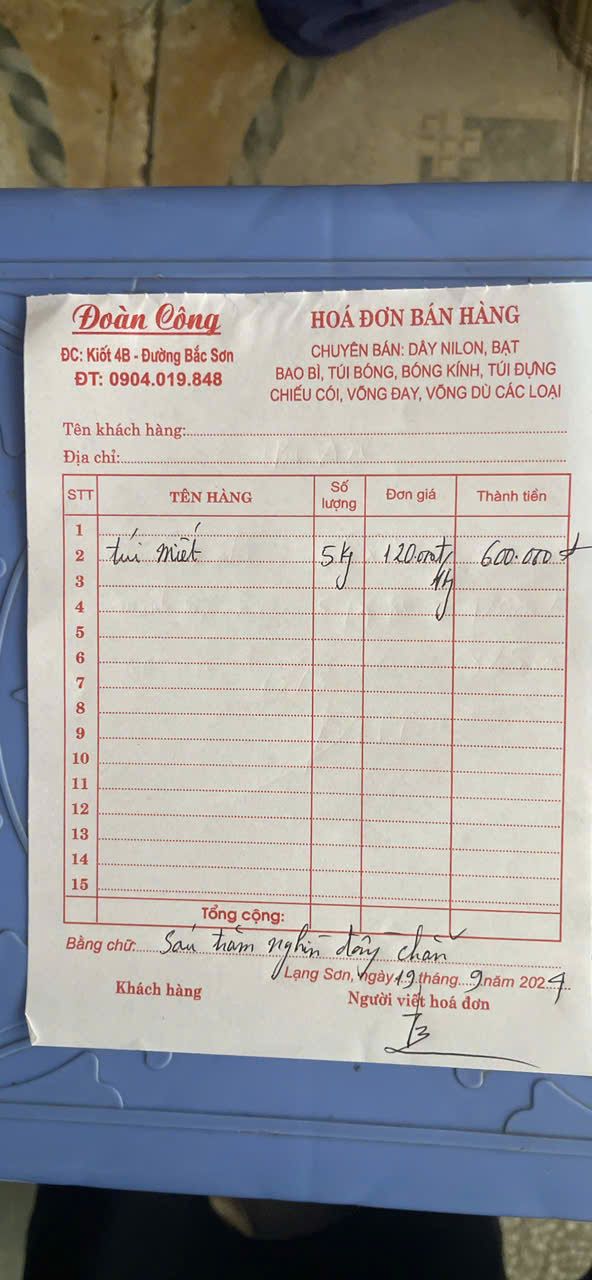 Đoàn Công
ĐC: Kiốt 4B - Đường Bắc Sơn
ĐT: 0904.019.848
HOÁ ĐƠN BÁN HÀNG
CHUYÊN BÁN: DÂY NILON, BẠT
BAO BÌ, TÚI BÓNG, BÓNG KÍNH, TÚI ĐỰNG
CHIẾU CÓI, VÕNG ĐAY, VÕNG DÙ CÁC LOẠI
Tên khách hàng:
Địa chỉ:
STT TÊN HÀNG Số lượng Đơn giá Thành tiền
1
2 túi miết 5kg 120.000đ/1kg 600.000đ
3
4
5
6
7
8
9
10
11
12
13
14
15
Tổng cộng:
Bằng chữ: Sáu trăm nghìn đồng chẵn
Lạng Sơn, ngày 19 tháng 9 năm 2024
Khách hàng Người viết hoá đơn